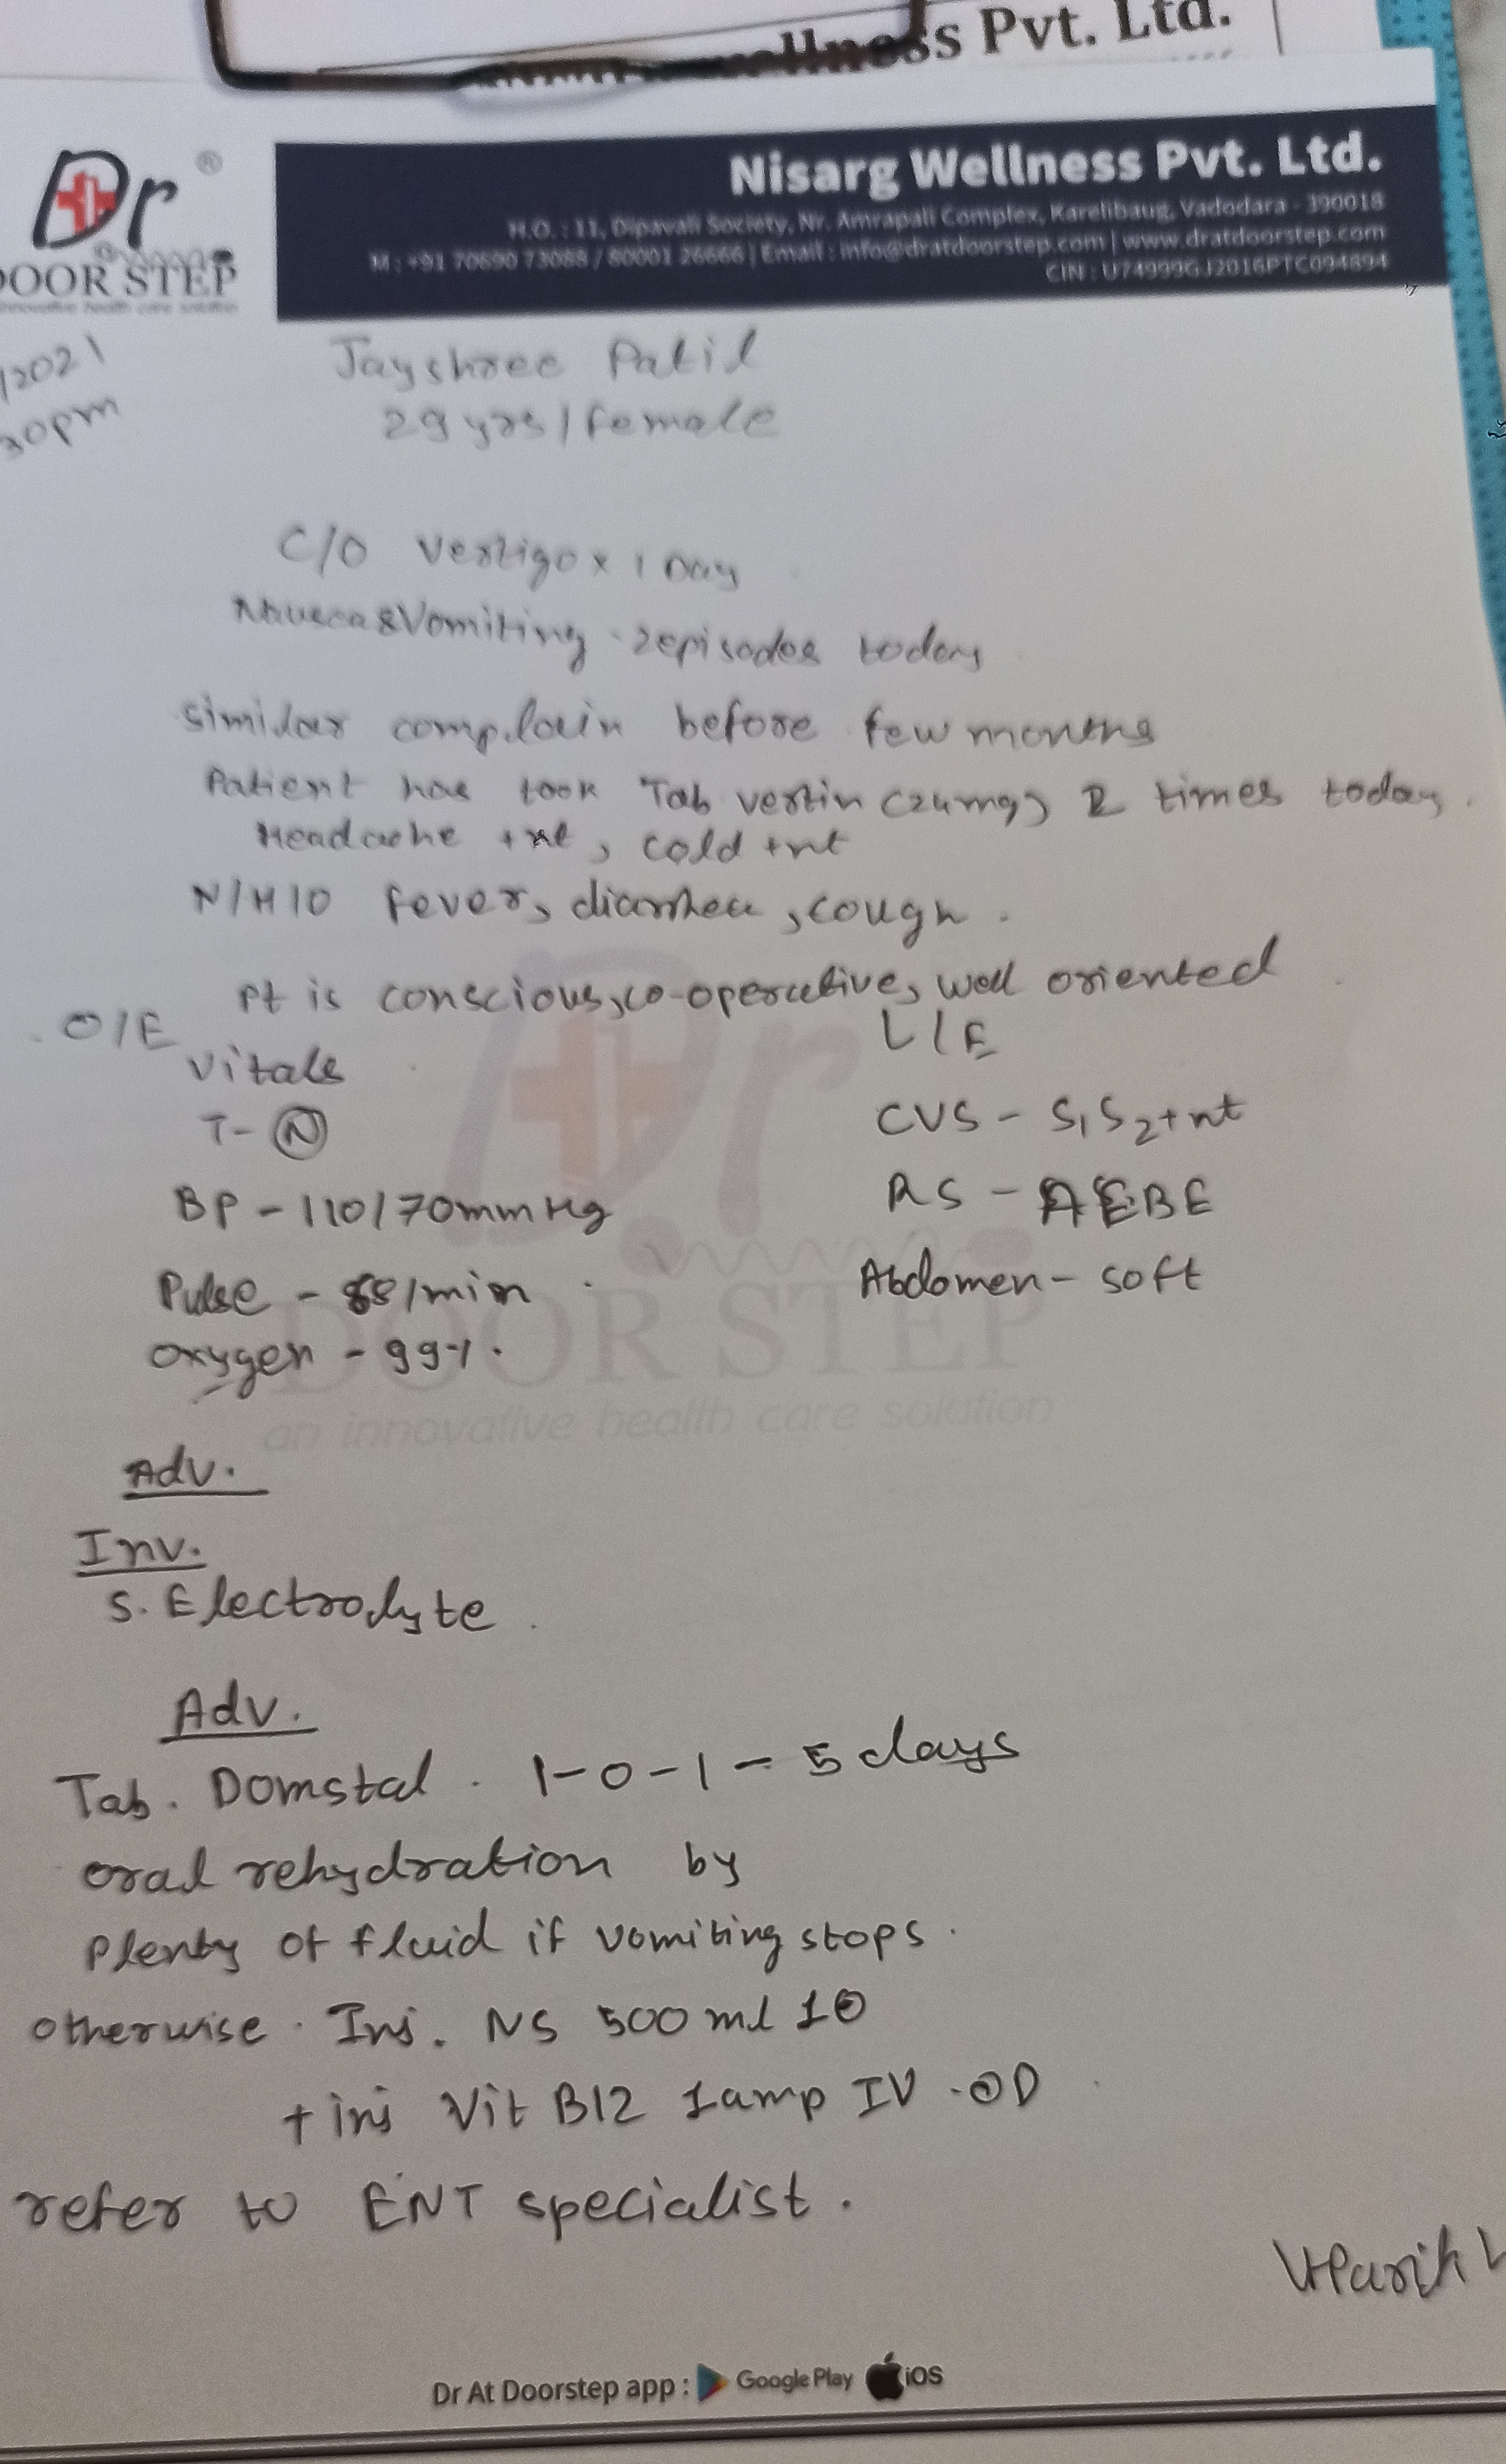 ellness Pvt. Ltd.
Dr ®
DOOR STEP
innovative health care solution
Nisarg Wellness Pvt. Ltd.
H.O. : 11, Dipavali Society, Nr. Amrapali Complex, Karelibaug, Vadodara - 390018
M : +91 70690 73088 / 80001 26666 | Email : info@dratdoorstep.com | www.dratdoorstep.com
CIN : U74999GJ2016PTC094894
/2021
30pm
Jayshree Patil
29 yrs / female
C/O Vertigo x 1 Day
Nausea & Vomiting - 2 episodes today
similar complain before few months
Patient has took Tab vertin (24mg) 2 times today.
Headache +nt, cold +nt
N/H/O fever, diarrhea, cough.
Pt is conscious, co-operative, well oriented
O/E
Vitals
L/E
T - (N)
CVS - S1 S2 +nt
BP - 110/70 mmHg
RS - AEBE
Pulse - 88/min
Abdomen - soft
Oxygen - 99%.
Dr
DOOR STEP
an innovative health care solution
Adv.
Inv.
S. Electrolyte.
Adv.
Tab. Domstal. 1-0-1 - 5 days
oral rehydration by
plenty of fluid if vomiting stops.
otherwise. Inj. NS 500 ml
+ inj Vit B12 1amp IV OD
refer to ENT specialist.
Dr At Doorstep app : Google Play iOS